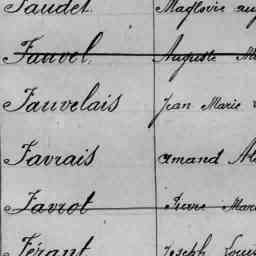 Faudet Magloire
Fauvel Auguste
Fauvelais Jean Marie
Favrais Amand
Favrot Pierre
Férant Joseph Louis